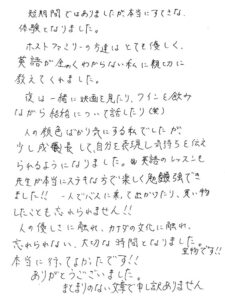 短期間ではありましたが本当にすてきな、
体験となりました。
ホストファミリーのうち達はとても優しく、
英語が全くわからない私に親切に
教えてくれました。
夜は一緒に映画を見たり、ワインを飲み
ながら結婚について話したり(笑)
人の顔色ばかり気にする私でしたが、
少し成長して、自分を表現し気持ちを伝え
られるようになりました。英語のレッスンも
先生が本当にステキな方で楽しく勉強でき
ました!! 一人でバスに乗って出かけたり、買い物
したことも忘れられません!!
人の優しさに触れ、カナダの文化に触れ、
忘れられない、大切な時間となりました。
宝物です!!
本当に行ってよかったです!!
ありがとうございました。
まとまりのない文章で申し訳ありません